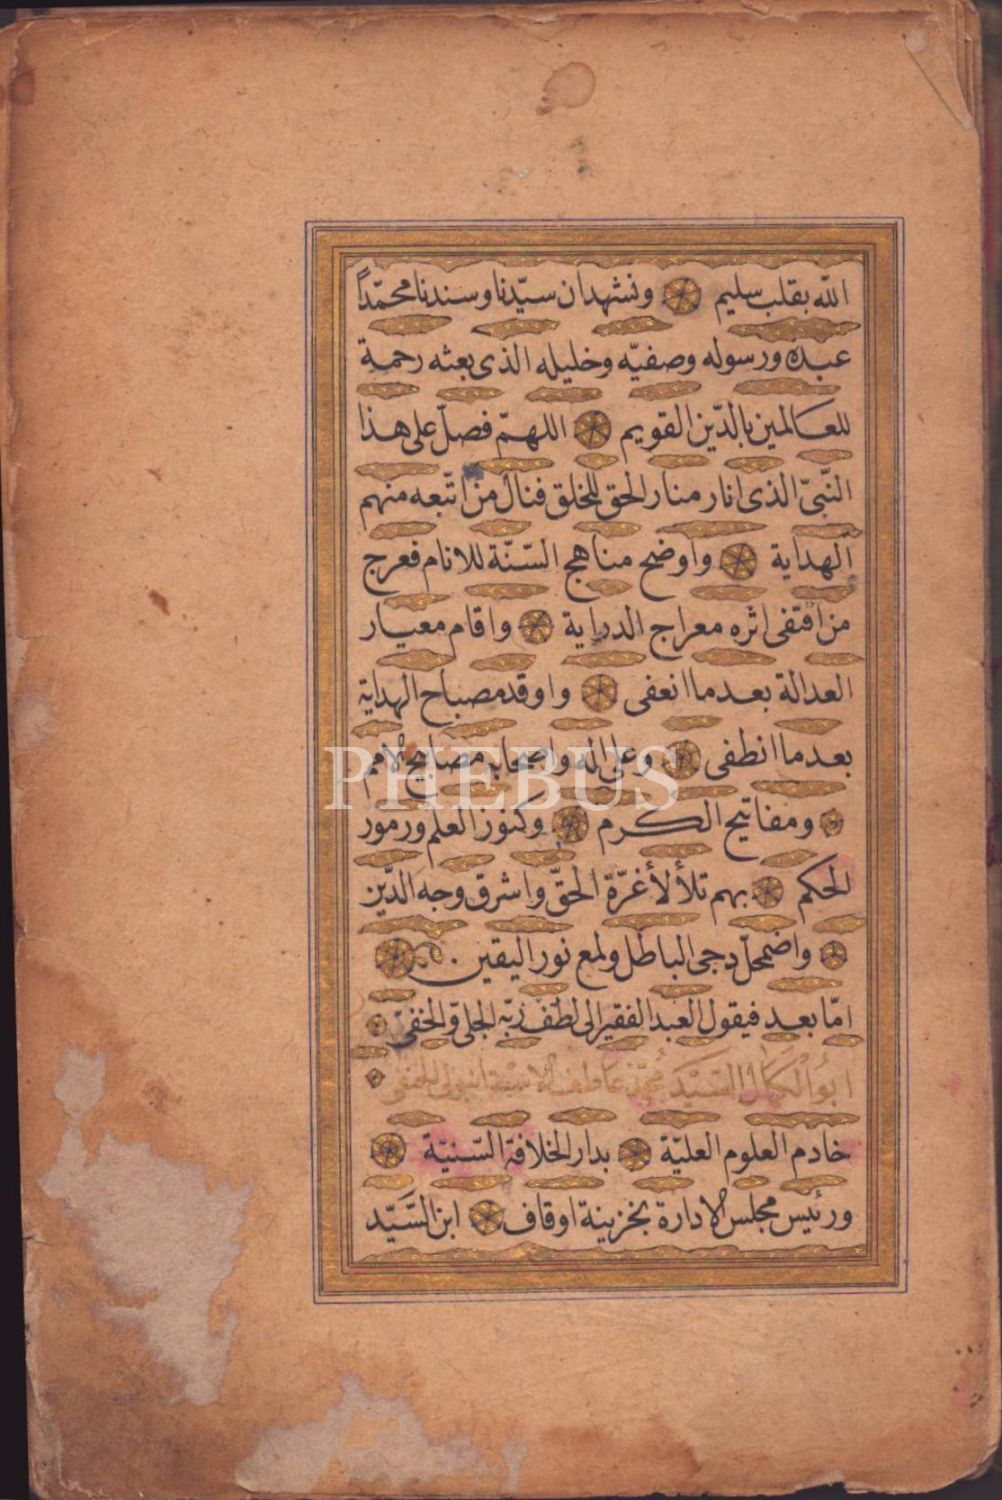 الله بقلب سليم ونشهد ان سيّدنا وسندنا محمّداً
عبده ورسوله وصفيّه وخليله الذى بعثه رحمة
للعالمين بالدّين القويم اللهمّ فصلّ على هذا
النّبىّ الذى انار منار الحق للخلق فنال من اتّبعه منهم
الهداية واوضح مناهج السّنّة للانام فعرج
من اقتفى اثره معراج الدراية واقام معيار
العدالة بعدما انعفى واوقد مصباح الهداية
بعدما انطفى وعلى اله واصحابه مصابيح الامم
ومفاتيح الكرم وكنوز العلم ورموز
الحكم بهم تلألأ غرّة الحقّ واشرق وجه الدّين
واضمحلّ دجى الباطل ولمع نور اليقين
امّا بعد فيقول العبد الفقير الى لطف ربّه الجلىّ والخفىّ
ابو الكمال السّيّد محمّد عاطف الحنفى
خادم العلوم العليّة بدار الخلافة السّنيّة
ورئيس مجلس الادارة بخزينة اوقاف ابن السّيّد
PHEBUS